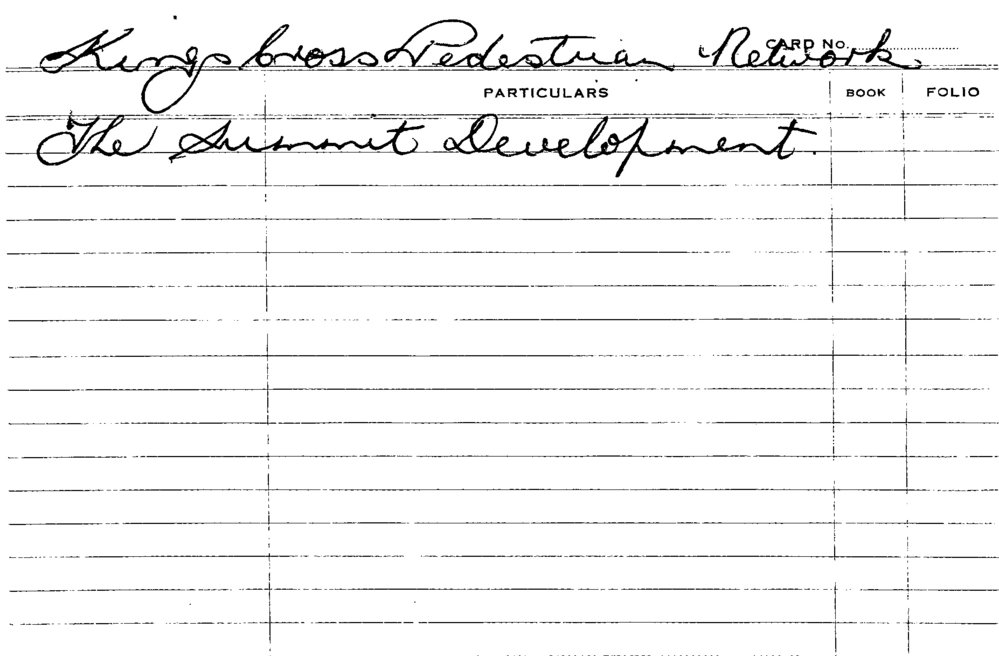 Kings Cross Pedestrian Network.
CARD No.
PARTICULARS BOOK FOLIO
The Summit Development.